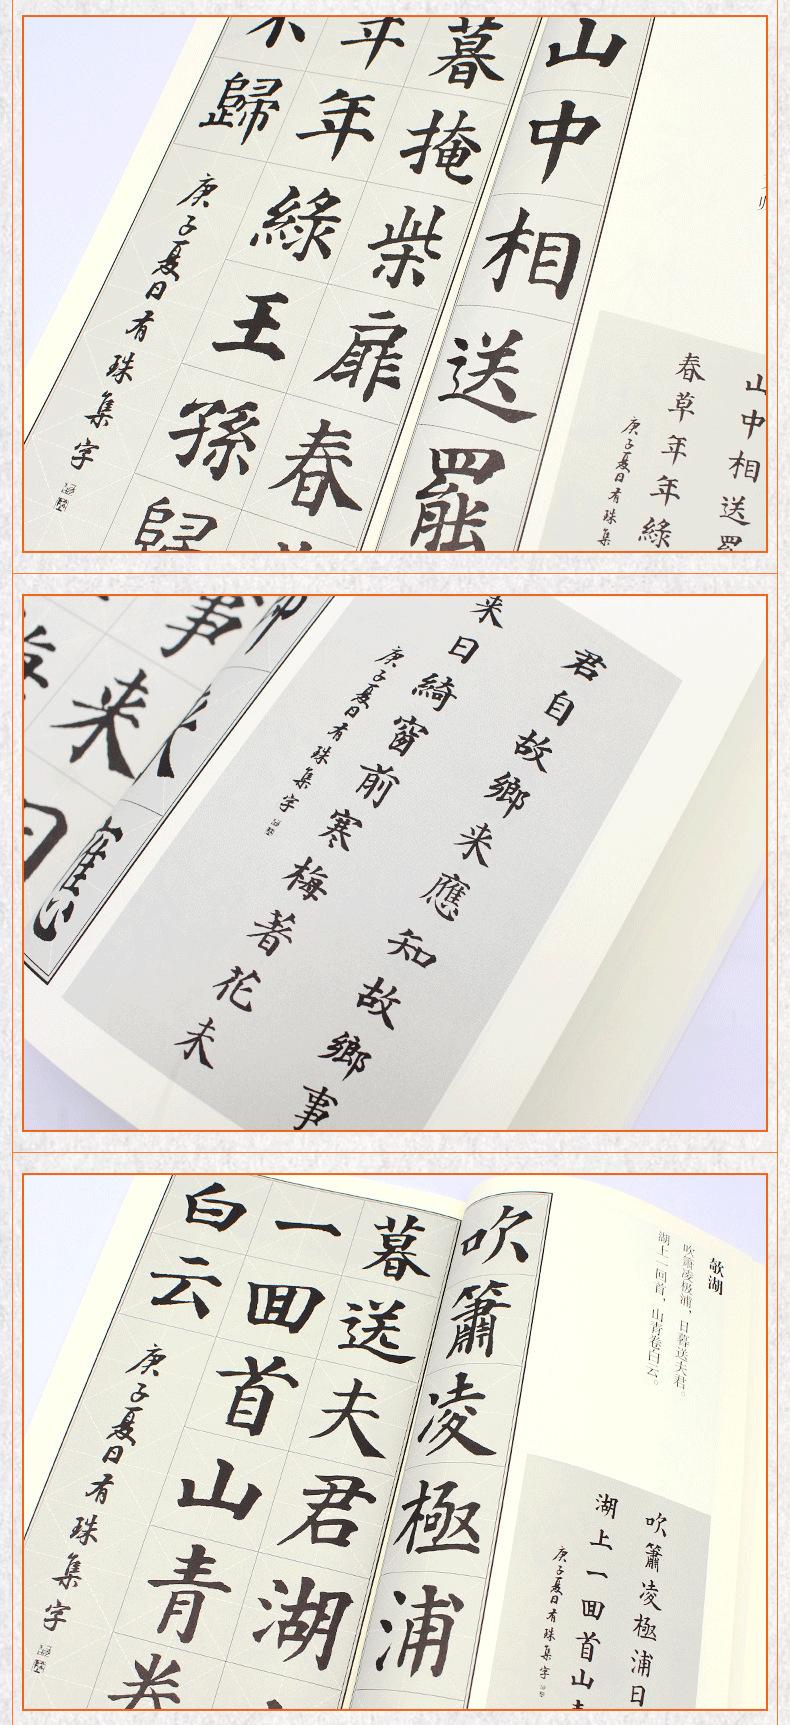 归
山中相送
春草年年綠
庚子夏日有珠集
山中相送罷
暮掩柴扉春
年年綠王孫歸
不歸
庚子夏日有珠集字
君自故鄉来應知故鄉事
来日綺窗前寒梅著花未
庚子夏日有珠集字
事来日
欹湖
吹箫凌极浦，日暮送夫君。
湖上一回首，山青卷白云。
吹簫凌極浦日
湖上一回首山
庚子夏日有珠集字
吹簫凌極浦
暮送夫君湖
一回首山青卷
白云
庚子夏日有珠集字